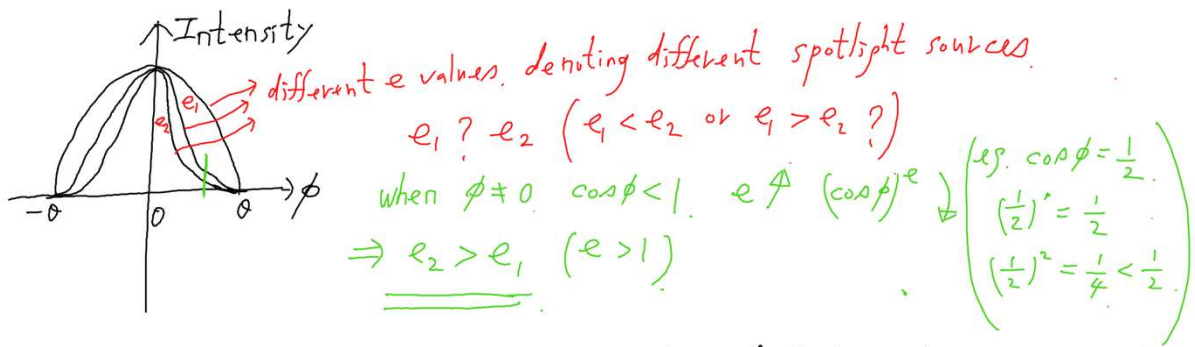 Intensity
different e values. denoting different spotlight sources.
e₁
e₂
e₁ ? e₂ ( e₁ < e₂ or e₁ > e₂ ? )
-θ 0 θ ϕ
when ϕ ≠ 0. cosϕ < 1. e ↑ (cosϕ)^e ↓
⇒ e₂ > e₁ (e > 1)
eg. cosϕ = 1/2.
(1/2)¹ = 1/2
(1/2)² = 1/4 < 1/2.